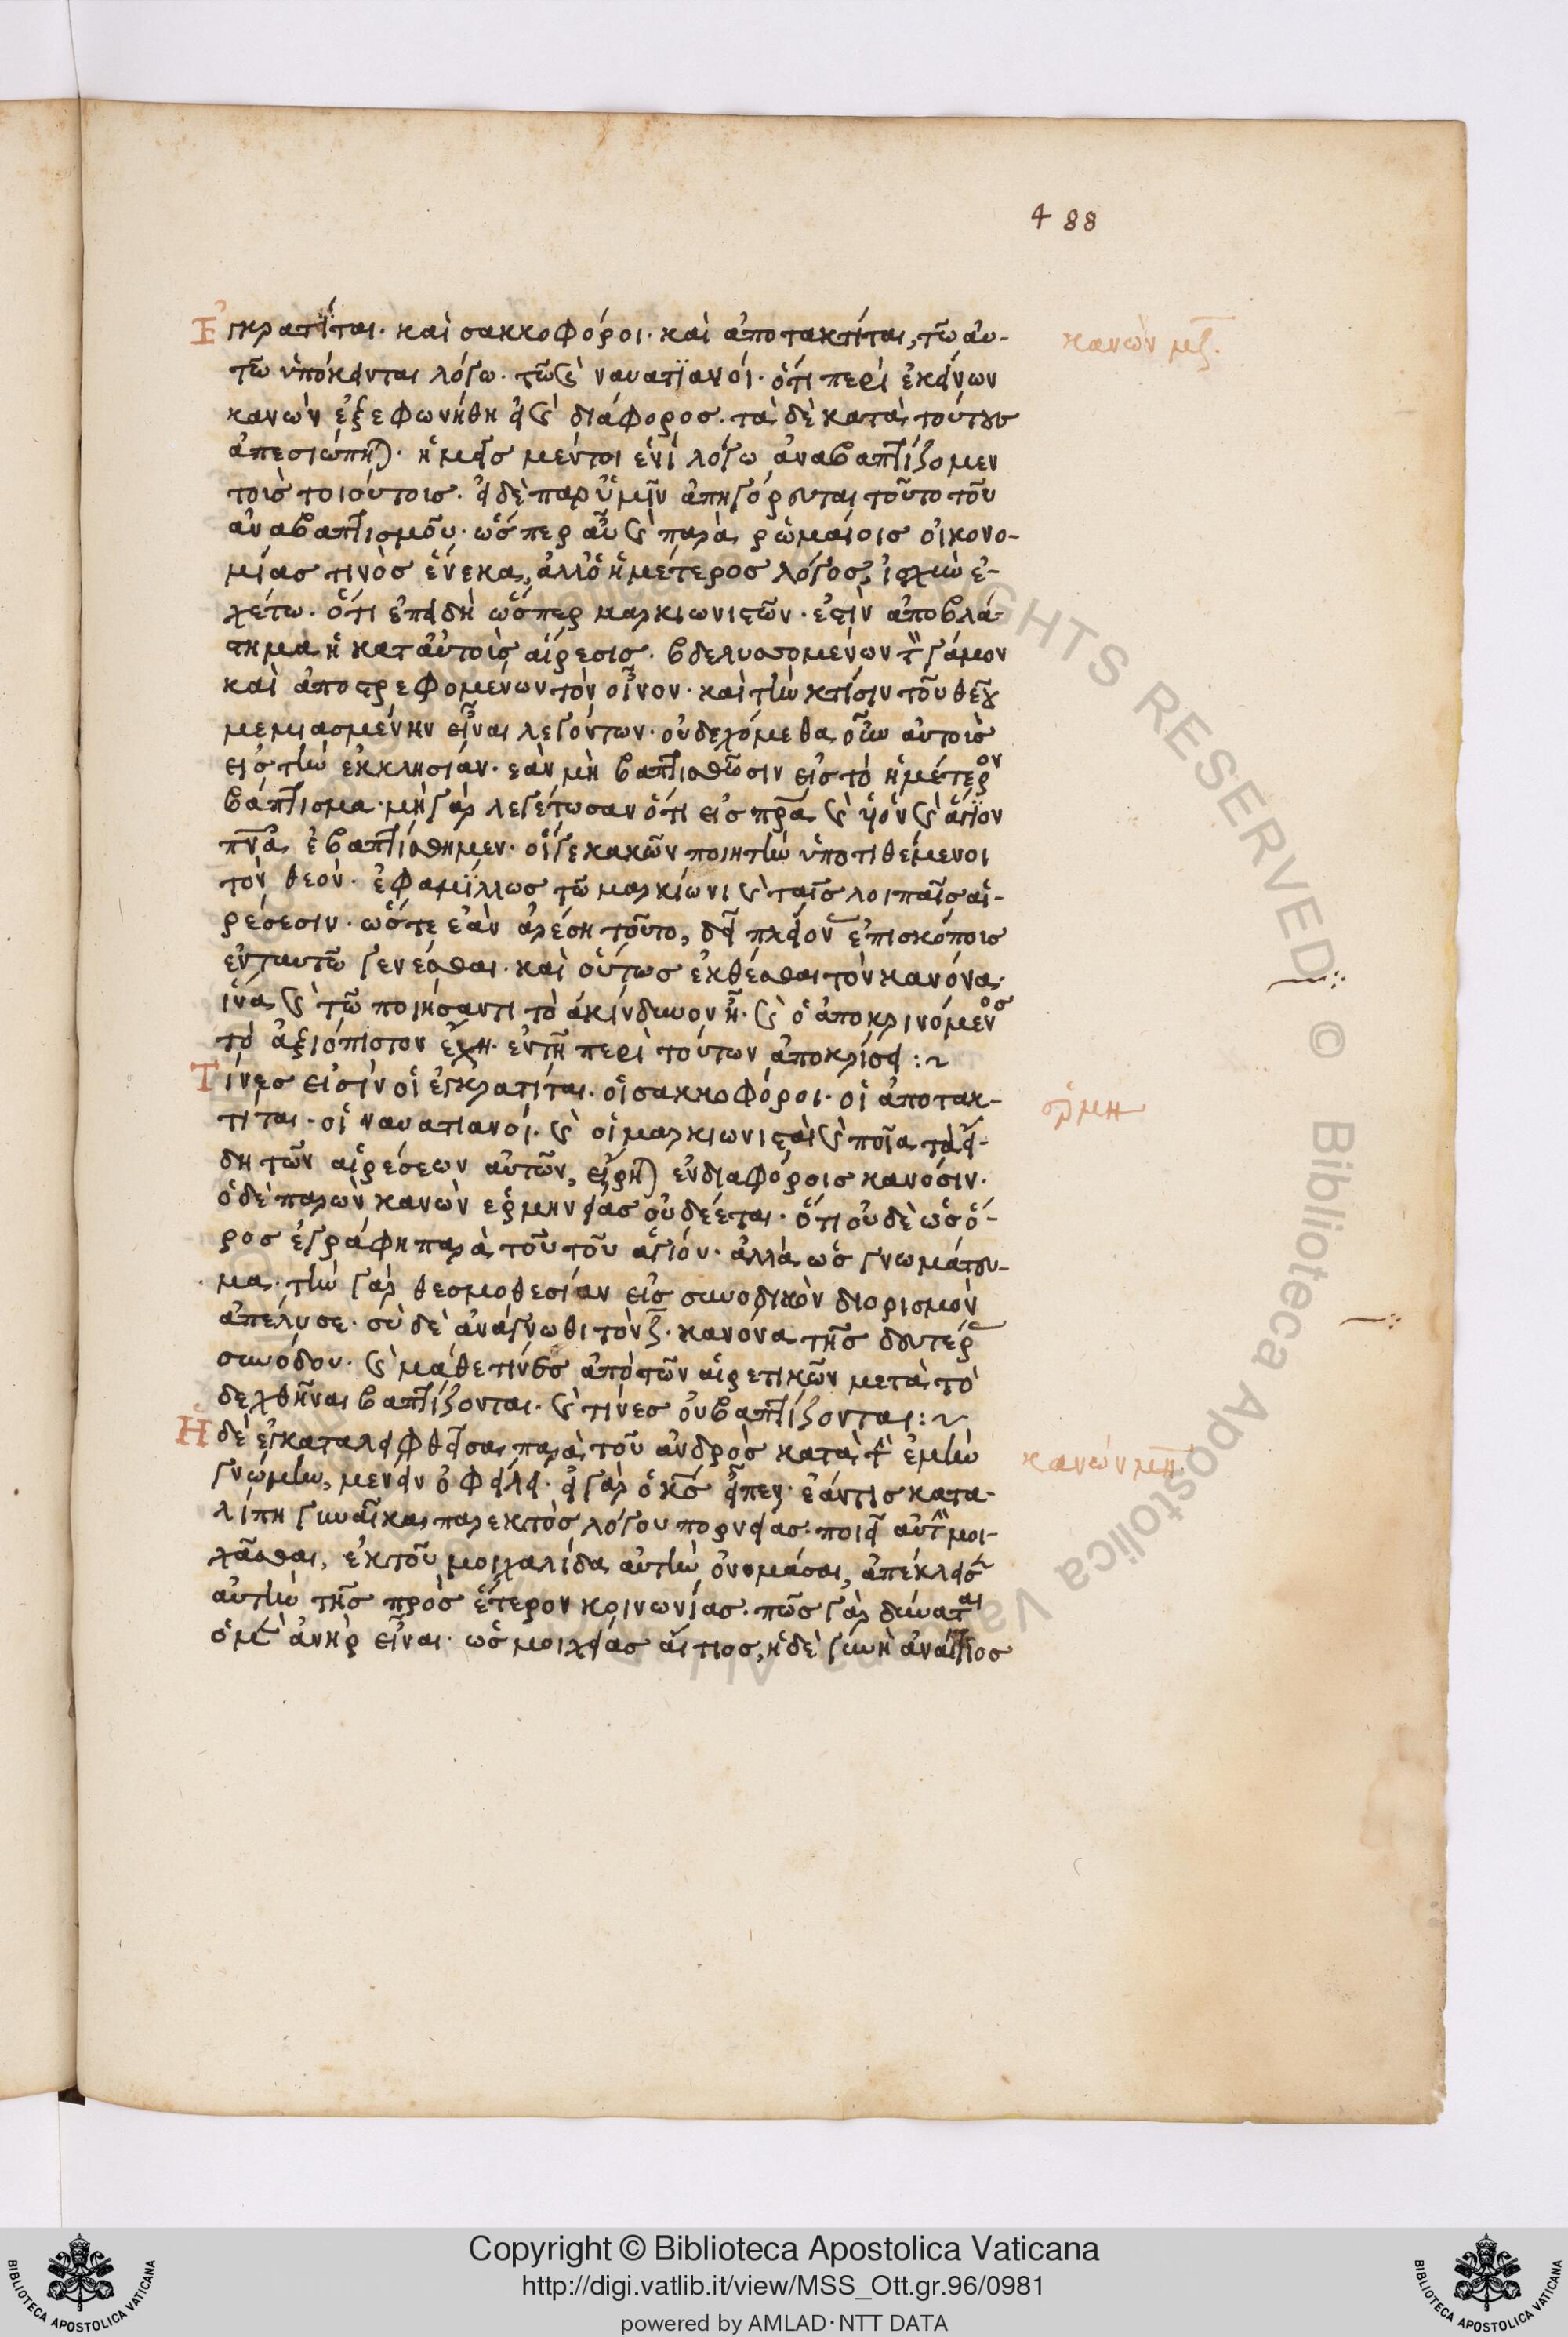 488
Ἐγκρατῖται· καὶ σακκοφόροι· καὶ ἀποτακτίται, τῶ αὐ-
κανὼν μζ.
τῶ ὑπόκεινται λόγω· τῶ καὶ ναυατϊανοί· ὅτι περὶ ἐκείνων
κανὼν ἐξεφωνήθη εἰ καὶ διάφορος· τὰ δὲ κατὰ τούτους
ἀπεσιώπηται· ἡμεῖς μέντοι ἑνὶ λόγω ἀναβαπτίζομεν
τοὶς τοιούτοις· εἰ δὲ παρ' ὑμῖν ἀπηγόρευται τοῦτο τοῦ
ἀναβαπτισμοῦ· ὥσπερ αὖ καὶ παρὰ ῥωμαίοις οἰκονο-
μίας τινὸς ἕνεκα, ἀλλ' ὁ ἡμέτερος λόγος, ἰσχὺν ἐ-
χέτω· ὅτι ἐπειδὴ ὥσπερ μαρκιωνιστῶν· ἐστὶν ἀποβλά-
στημα ἡ κατ' αὐτοὶς αἵρεσις· βδελυσσομένων τὸν γάμον
καὶ ἀποστρεφομένων τὸν οἶνον· καὶ τὴν κτίσιν τοῦ θεοῦ
μεμιασμένην εἶναι λεγόντων· οὐ δεχόμεθα οὖν αὐτοὶς
εἰς τὴν ἐκκλησίαν· ἐὰν μὴ βαπτισθῶσιν εἰς τὸ ἡμέτερον
βάπτισμα· μὴ γὰρ λεγέτωσαν ὅτι εἰς πρα καὶ υἱὸν καὶ ἅγϊον
πνα ἐβαπτίσθημεν· οἵ γε κακῶν ποιητὴν ὑποτιθέμενοι
τὸν θεὸν· ἐφαμΐλλως τῶ μαρκίωνι καὶ ταῖς λοιπαῖς αἱ-
ρέσεσιν· ὥστε ἐὰν ἀρέση τοῦτο, δεῖ πλείονας ἐπισκόπους
ἐν ταυτῶ γενέσθαι· καὶ οὕτως ἐκθέσθαι τὸν κανόνα·
ἵνα καὶ τῶ ποιήσαντι τὸ ἀκίνδυνον ἦ· καὶ ὁ ἀποκρινόμενος
τὸ ἀξιόπιστον ἔχη· ἐν τῆ περὶ τούτων ἀποκρίσει :~
Τίνες εἰσὶν οἱ ἐγκρατίται· οἱ σακκοφόροι· οἱ ἀποτακ-
τίται· οἱ ναυατιανοί· καὶ οἱ μαρκιωνισταὶ καὶ ποῖα τὰ εἴ-
δη τῶν αἱρέσεων αὐτῶν, εἴρηται ἐν διαφόροις κανόσιν·
ὁ δὲ παρὼν κανὼν ἑρμηνείας οὐ δέεται· ὅτι οὐδὲ ὡς ὅ-
ρος ἐγράφη παρὰ τοῦ του ἁγίου· ἀλλὰ ὡς γνωμάτευ-
μα· τὴν γὰρ θεσμοθεσίαν εἰς συνοδικὸν διορισμὸν
ἀπέλυσε· σὺ δὲ ἀνάγνωθι τὸν ζ· κανόνα τῆς δευτέρας
συνόδου· καὶ μάθε τίνες ἀπὸ τῶν αἱρετικῶν μετὰ τὸ
δεχθῆναι βαπτίζονται· καὶ τίνες οὐ βαπτίζονται :~
Ἡ δὲ ἐγκαταλειφθεῖσα παρὰ τοῦ ἀνδρὸς κατὰ τὴν ἐμὴν
κανὼν μη
γνώμην, μένειν ὀφείλει· εἰ γὰρ ὁ κς εἶπεν· ἐάν τις κατα-
λίπη γυναῖκα παρεκτὸς λόγου πορνείας· ποιεῖ αὐτὴν μοι-
χᾶσθαι, ἐκ τοῦ μοιχαλίδα αὐτὴν ὀνομάσαι, ἀπέκλεισεν
αὐτὴν τῆς πρὸς ἕτερον κοινωνίας· πῶς γὰρ δύναται
ὁ μὲν ἀνὴρ εἶναι· ὡς μοιχείας αἴτιος, ἡ δὲ γυνὴ ἀναίτιος
Copyright © Biblioteca Apostolica Vaticana
http://digi.vatlib.it/view/MSS_Ott.gr.96/0981
powered by AMLAD·NTT DATA